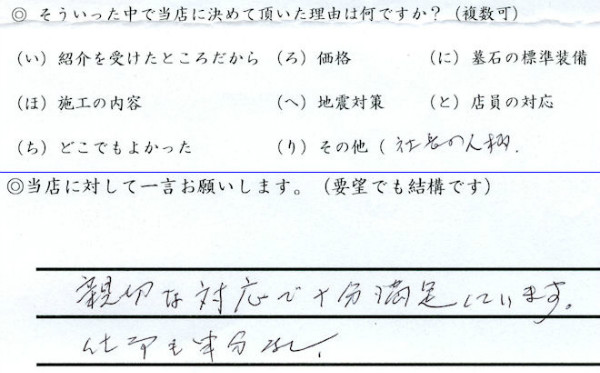 ◎ そういった中で当店に決めて頂いた理由は何ですか？（複数可）
（い）紹介を受けたところだから（ろ）価格　（に）墓石の標準装備
（ほ）施工の内容　（へ）地震対策　（と）店員の対応
（ち）どこでもよかった　（り）その他（社長の人柄.
◎当店に対して一言お願いします。（要望でも結構です）
親切な対応で十分満足しています。
仕事も申分なし.